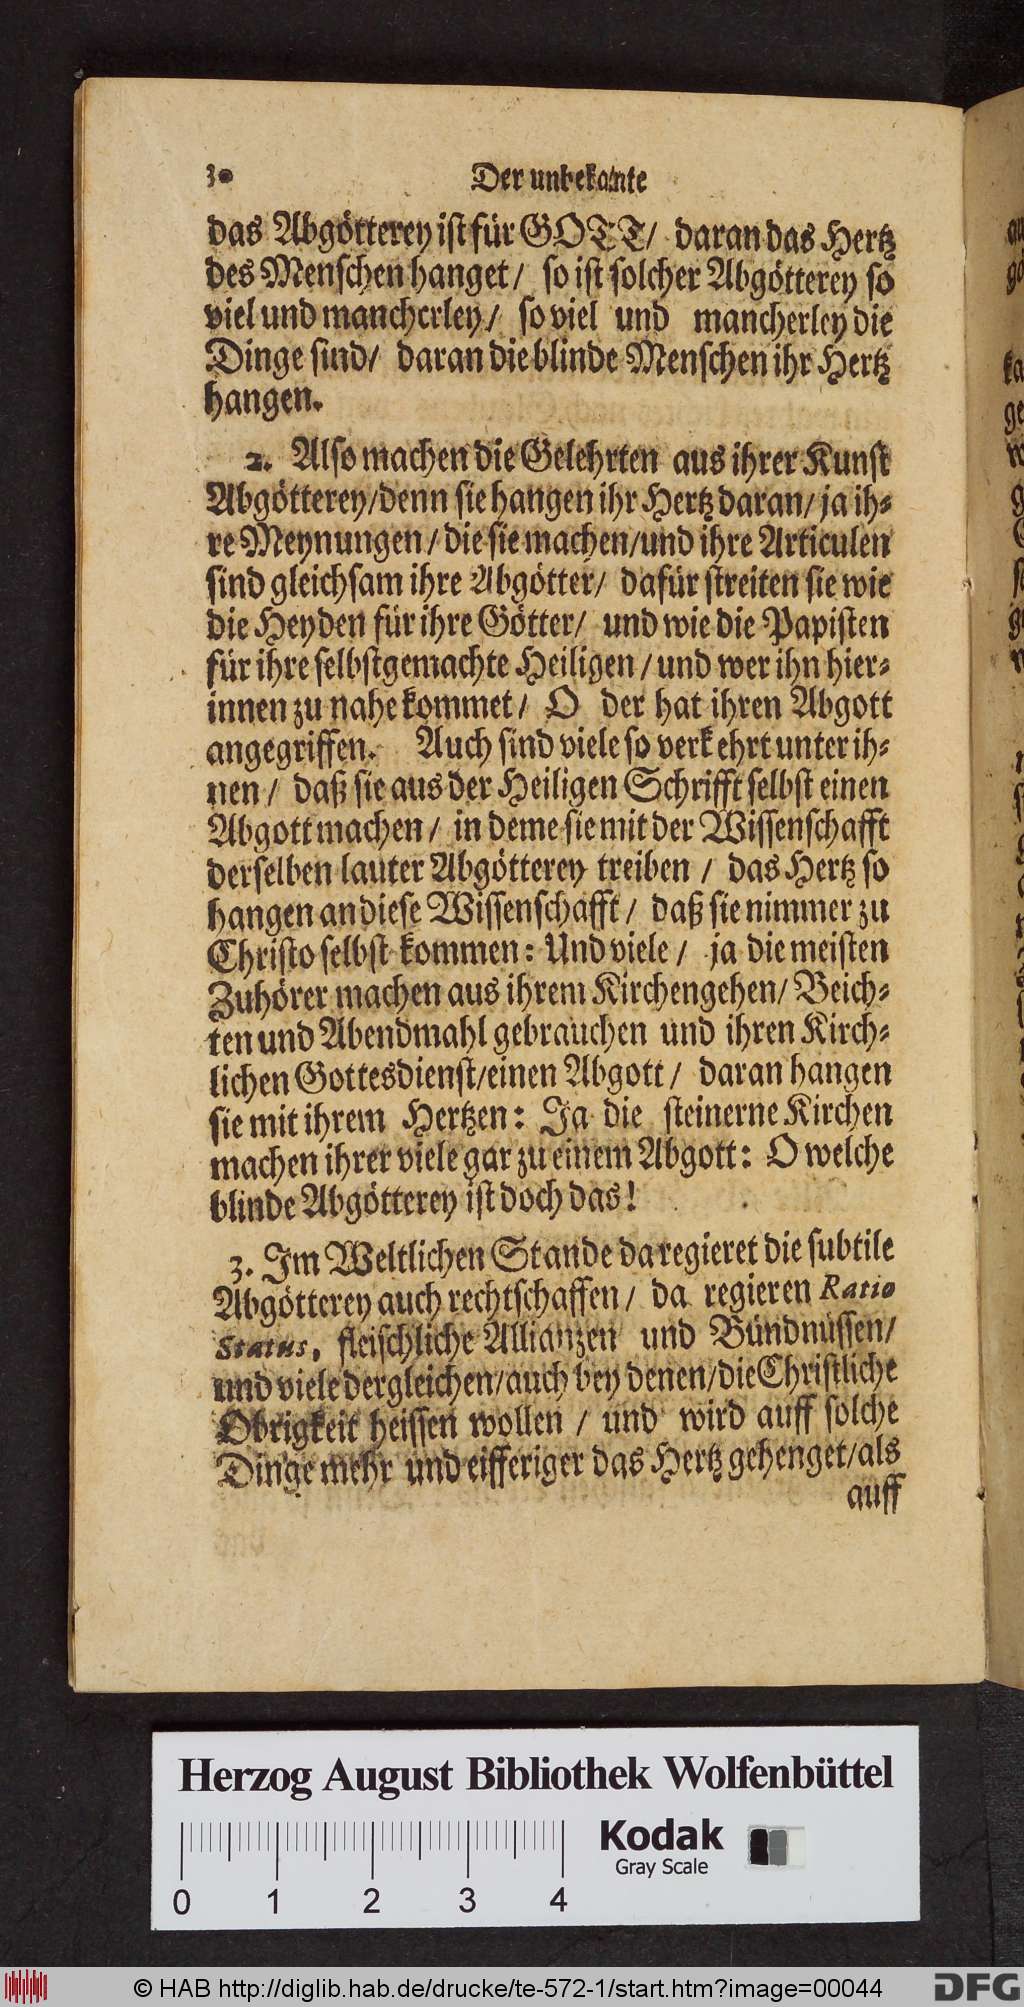 30 Der unbekante
das Abgötterey ist für GOTT/ daran das Hertz
des Menschen hanget/ so ist solcher Abgötterey so
viel und mancherley/ so viel und mancherley die
Dinge sind/ daran die blinde Menschen ihr Hertz
hangen.
2. Also machen die Gelehrten aus ihrer Kunst
Abgötterey/denn sie hangen ihr Hertz daran/ ja ih-
re Meynungen/ die sie machen/und ihre Articulen
sind gleichsam ihre Abgötter/ dafür streiten sie wie
die Heyden für ihre Götter/ und wie die Papisten
für ihre selbstgemachte Heiligen/ und wer ihn hier-
innen zu nahe kommet/ O der hat ihren Abgott
angegriffen. Auch sind viele so verkehrt unter ih-
nen/ daß sie aus der Heiligen Schrifft selbst einen
Abgott machen/ in deme sie mit der Wissenschafft
derselben lauter Abgötterey treiben/ das Hertz so
hangen an diese Wissenschafft/ daß sie nimmer zu
Christo selbst kommen: Und viele/ ja die meisten
Zuhörer machen aus ihrem Kirchengehen/ Beich-
ten und Abendmahl gebrauchen und ihren Kirch-
lichen Gottesdienst/einen Abgott/ daran hangen
sie mit ihrem Hertzen: Ja die steinerne Kirchen
machen ihrer viele gar zu einem Abgott: O welche
blinde Abgötterey ist doch das!
3. Im Weltlichen Stande da regieret die subtile
Abgötterey auch rechtschaffen/ da regieren Ratio
Status, fleischliche Allianzen und Bündnüssen/
und viele dergleichen/auch bey denen/die Christliche
Obrigkeit heissen wollen/ und wird auff solche
Dinge mehr und eifferiger das Hertz gehenget/als
auff
Herzog August Bibliothek Wolfenbüttel
Kodak
Gray Scale
0 1 2 3 4
© HAB http://diglib.hab.de/drucke/te-572-1/start.htm?image=00044
DFG